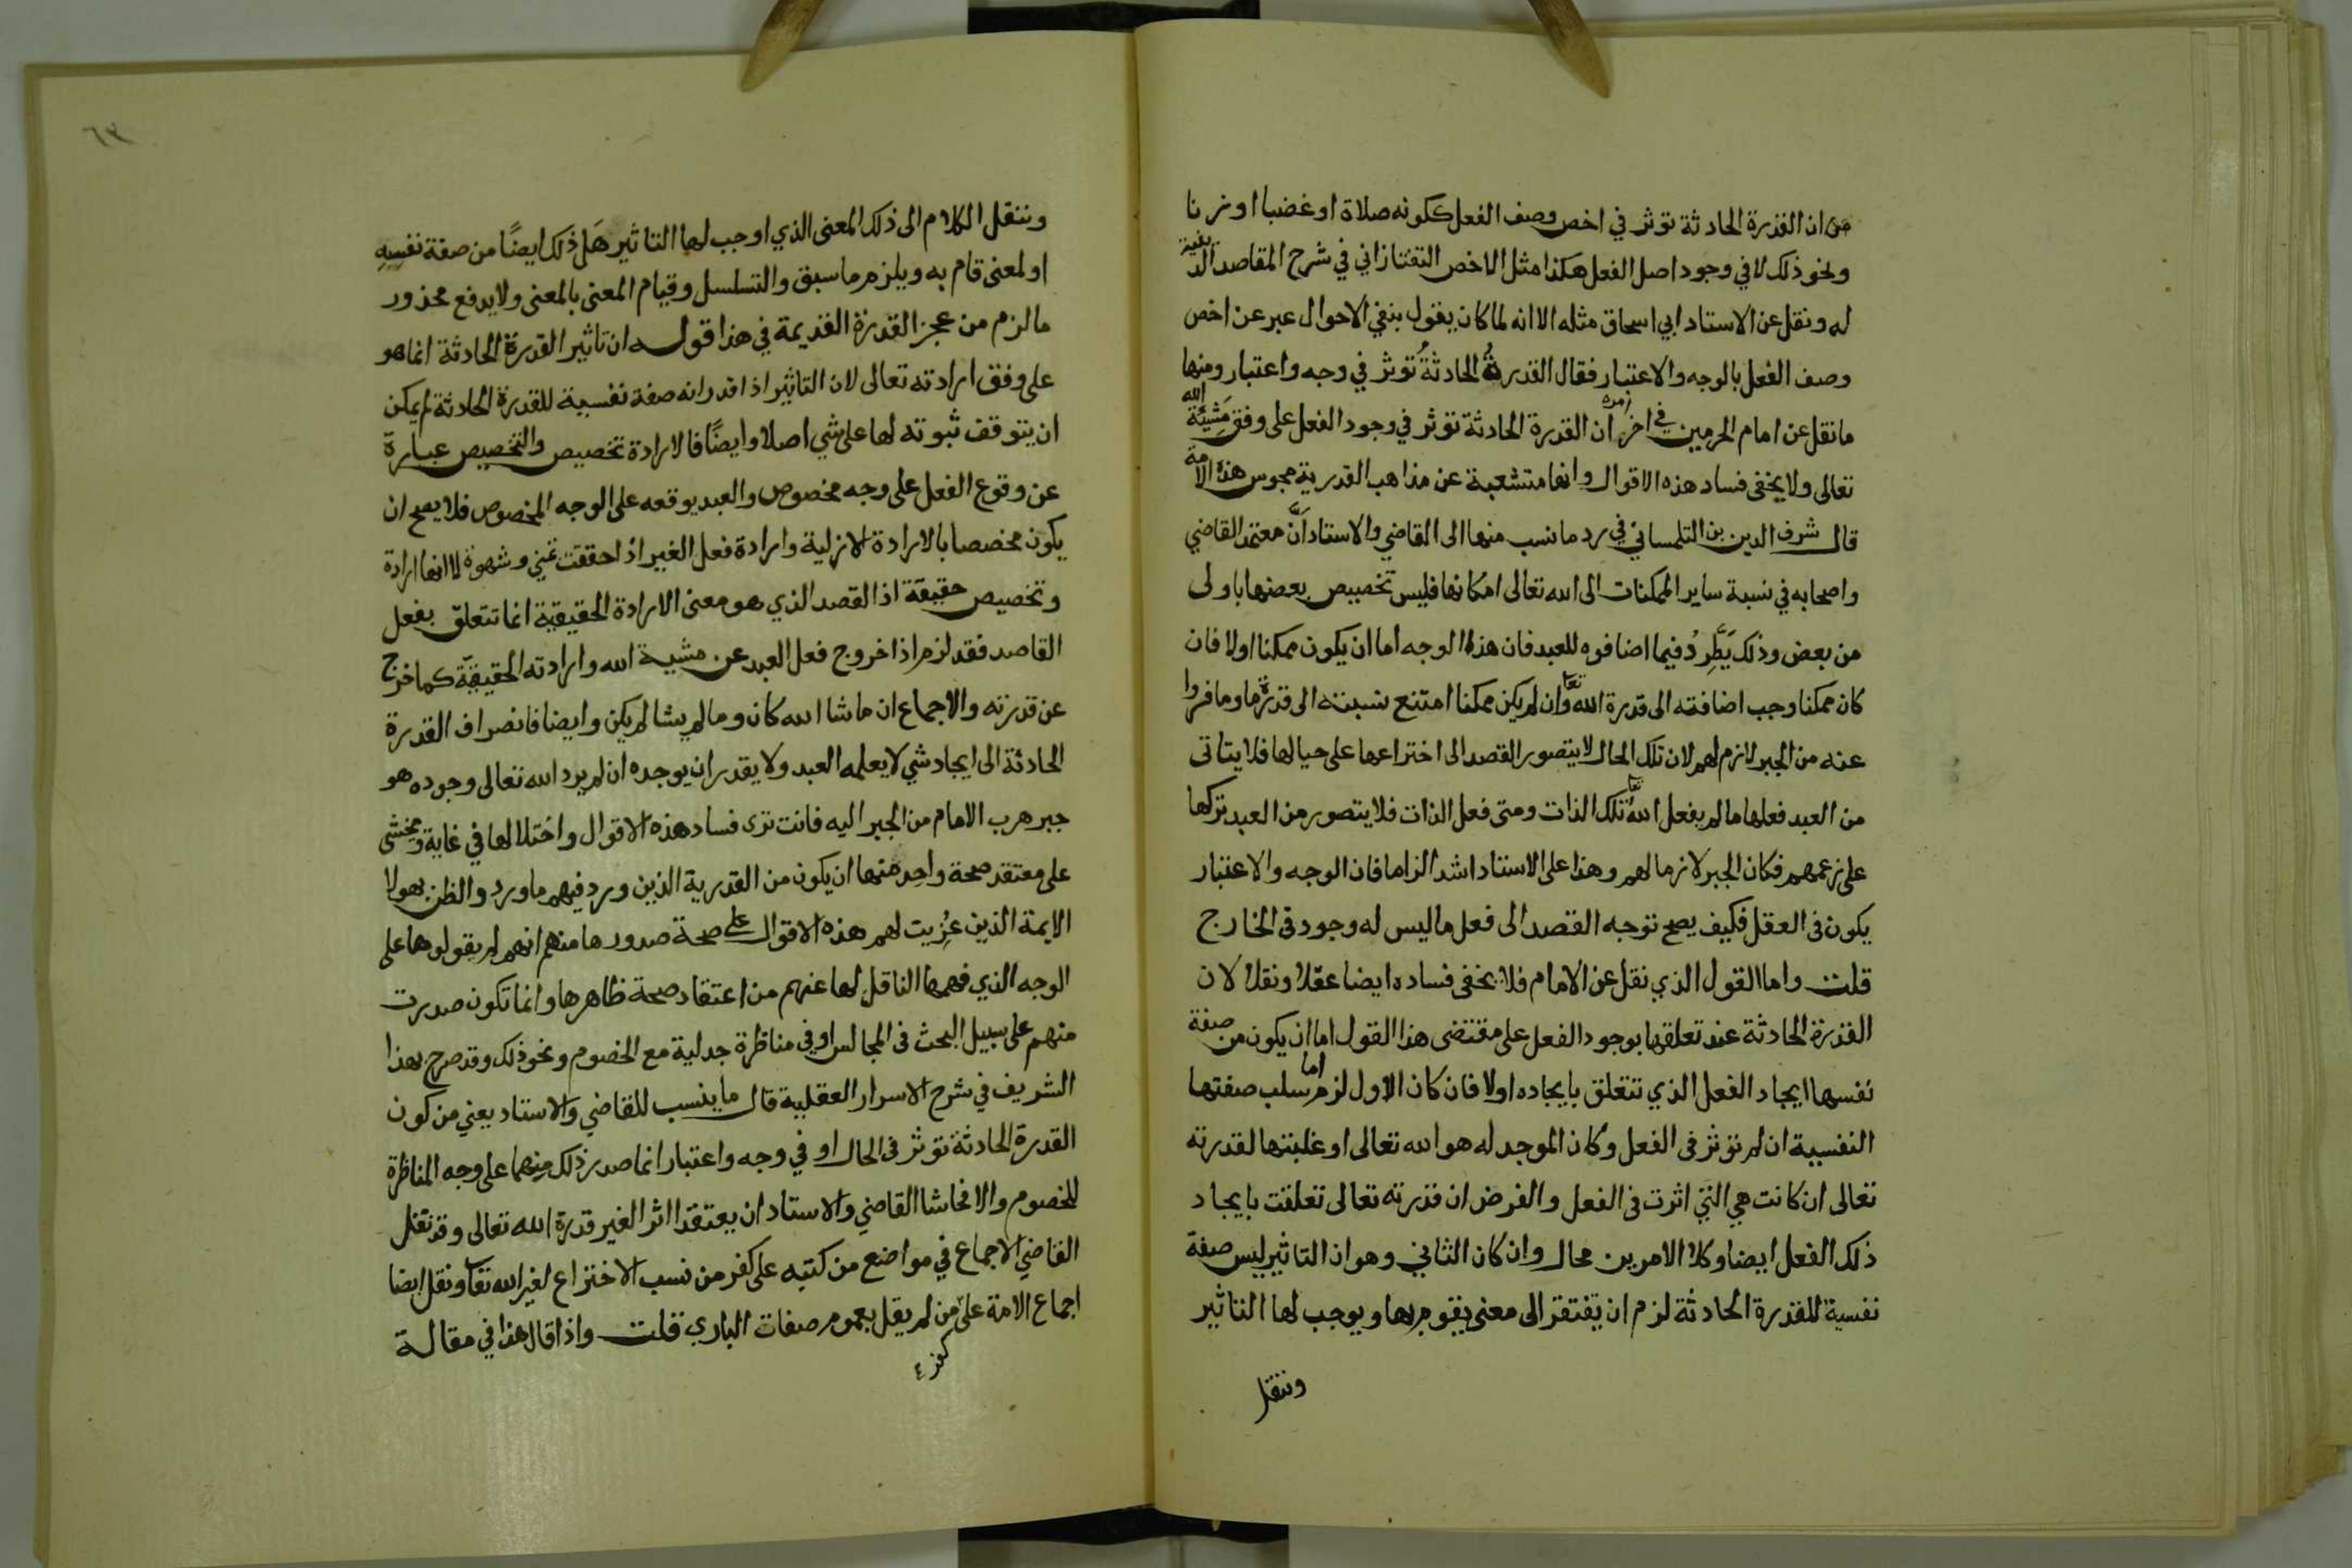 من ان القدرة الحادثة توثر في اخص وصف الفعل ككونه صلاة او غضبا او زنا
ونحو ذلك لا في وجود اصل الفعل هكذا مثل الاخص التفتازاني في شرح المقاصد الدينية
له ونقل عن الاستاد ابي اسحاق مثله الا انه لما كان يقول بنفي الاحوال عبر عن اخص
وصف الفعل بالوجه والاعتبار فقال القدرةُ الحادثةُ توثر في وجه واعتبار ومنها
ما نقل عن امام الحرمين في اخر امره ان القدرة الحادثة توثر في وجود الفعل على وفق مَشِيّة الله
تعالى ولا يخفى فساد هذه الاقوال وانها متشعبة عن مذاهب القدرية مجوس هذه الامة
قال شرف الدين بن التلمساني في رد ما نسب منها الى القاضي والاستاد اَنَّ معتمد القاضي
واصحابه في نسبة ساير الممكنات الى الله تعالى امكانها فليس تخصيص بعضها باولى
من بعض وذلك يَطَّرِدُ فيما اضافوه للعبد فان هذا الوجه اما ان يكون ممكنا اولا فان
كان ممكنا وجب اضافته الى قدرة الله تعا وان لم يكن ممكنا امتنع نسبته الى قدرة ما وما فروا
عنه من الجبر لازم لهم لان تلك الحال لا يتصور القصد الى اختراعها على حيالها فلا يتاتى
من العبد فعلها ما لم يفعل الله تعا تلك الذات ومتى فعل الذات فلا يتصور من العبد تركها
على زعمهم فكان الجبر لازما لهم وهذا على الاستاد اشد الزاما فان الوجه والاعتبار
يكون في العقل فكيف يصح توجه القصد الى فعل ما ليس له وجود في الخارج
قلت واما القول الذي نقل عن الامام فلا يخفى فساده ايضا عقلا ونقلا لان
القدرة الحادثة عند تعلقها بوجود الفعل على مقتضى هذا القول اما ان يكون من صفة
نفسها ايجاد الفعل الذي تتعلق بايجاده اولا فان كان الاول لزم اما سلب صفتها
النفسية ان لم توثر في الفعل وكان الموجد له هو الله تعالى او غلبتها لقدرته
تعالى ان كانت هي التي اثرت في الفعل والفرض ان قدرته تعالى تعلقت بايجاد
ذلك الفعل ايضا وكلا الامرين محال وان كان الثاني وهو ان التاثير ليس صفة
نفسية للقدرة الحادثة لزم ان يفتقر الى معنى يقوم بها ويوجب لها التاثير
وننقل
٦٣
وننقل الكلام الى ذلك المعنى الذي اوجب لها التاثير هَل ذلك ايضًا من صفة نفسِهِ
او لمعنى قام به ويلزم ما سبق والتسلسل وقيام المعنى بالمعنى ولا يدفع محذور
ما لزم من عجز القدرة القديمة في هذا قوله ان تاثير القدرة الحادثة انما هو
على وفق ارادته تعالى لان التاثير اذا قدر انه صفة نفسية للقدرة الحادثة لم يمكن
ان يتوقف ثبوته لها على شي اصلا وايضًا فالارادة تخصيص والتخصيص عبارة
عن وقوع الفعل على وجه مخصوص والعبد يوقعه على الوجه المخصوص فلا يصح ان
يكون مخصصا بالارادة الازلية وارادة فعل الغير اذا حققت تمني وشهوة لا انها ارادة
وتخصيص حقيقة اذ القصد الذي هو معنى الارادة الحقيقية انما تتعلق بفعل
القاصد فقد لزم اذا خروج فعل العبد عن مشية الله وارادته الحقيقيّة كما خرج
عن قدرته والاجماع ان ما شا الله كان وما لم يشا لم يكن وايضا فانصراف القدرة
الحادثة الى ايجاد شي لا يعلمه العبد ولا يقدر ان يوجده ان لم يرد الله تعالى وجوده هو
جبر هرب الامام من الجبر اليه فانت ترى فساد هذه الاقوال واختلالها في غاية ويخشى
على معتقد صحة واحد منها ان يكون من القدرية الذين ورد فيهم ما ورد والظن بهولا
الايمة الذين عُزِيت لهم هذه الاقوال على صحة صدورها منهم انهم لم يقولوها على
الوجه الذي فهمها الناقل لها عنهم من اعتقاد صحة ظاهرها وانما تكون صدرت
منهم على سبيل البحث في المجالس او في مناظرة جدلية مع الخصوم ونحو ذلك وقد صرح بهذا
الشريف في شرح الاسرار العقلية قال ما ينسب للقاضي والاستاد يعني من كون
القدرة الحادثة توثر في الحال او في وجه واعتبار انما صدر ذلك منهما على وجه المناظرة
للخصوم والا فحاشا القاضي والاستاد ان يعتقدا اثرا لغير قدرة الله تعالى وقد نقل
القاضي الاجماع في مواضع من كتبه على كفر من نسب الاختراع لغير الله تعا ونقل ايضا
اجماع الامة على من لم يقل بعموم صفات الباري قلت واذا قال هذا في مقالة
كفر ٤